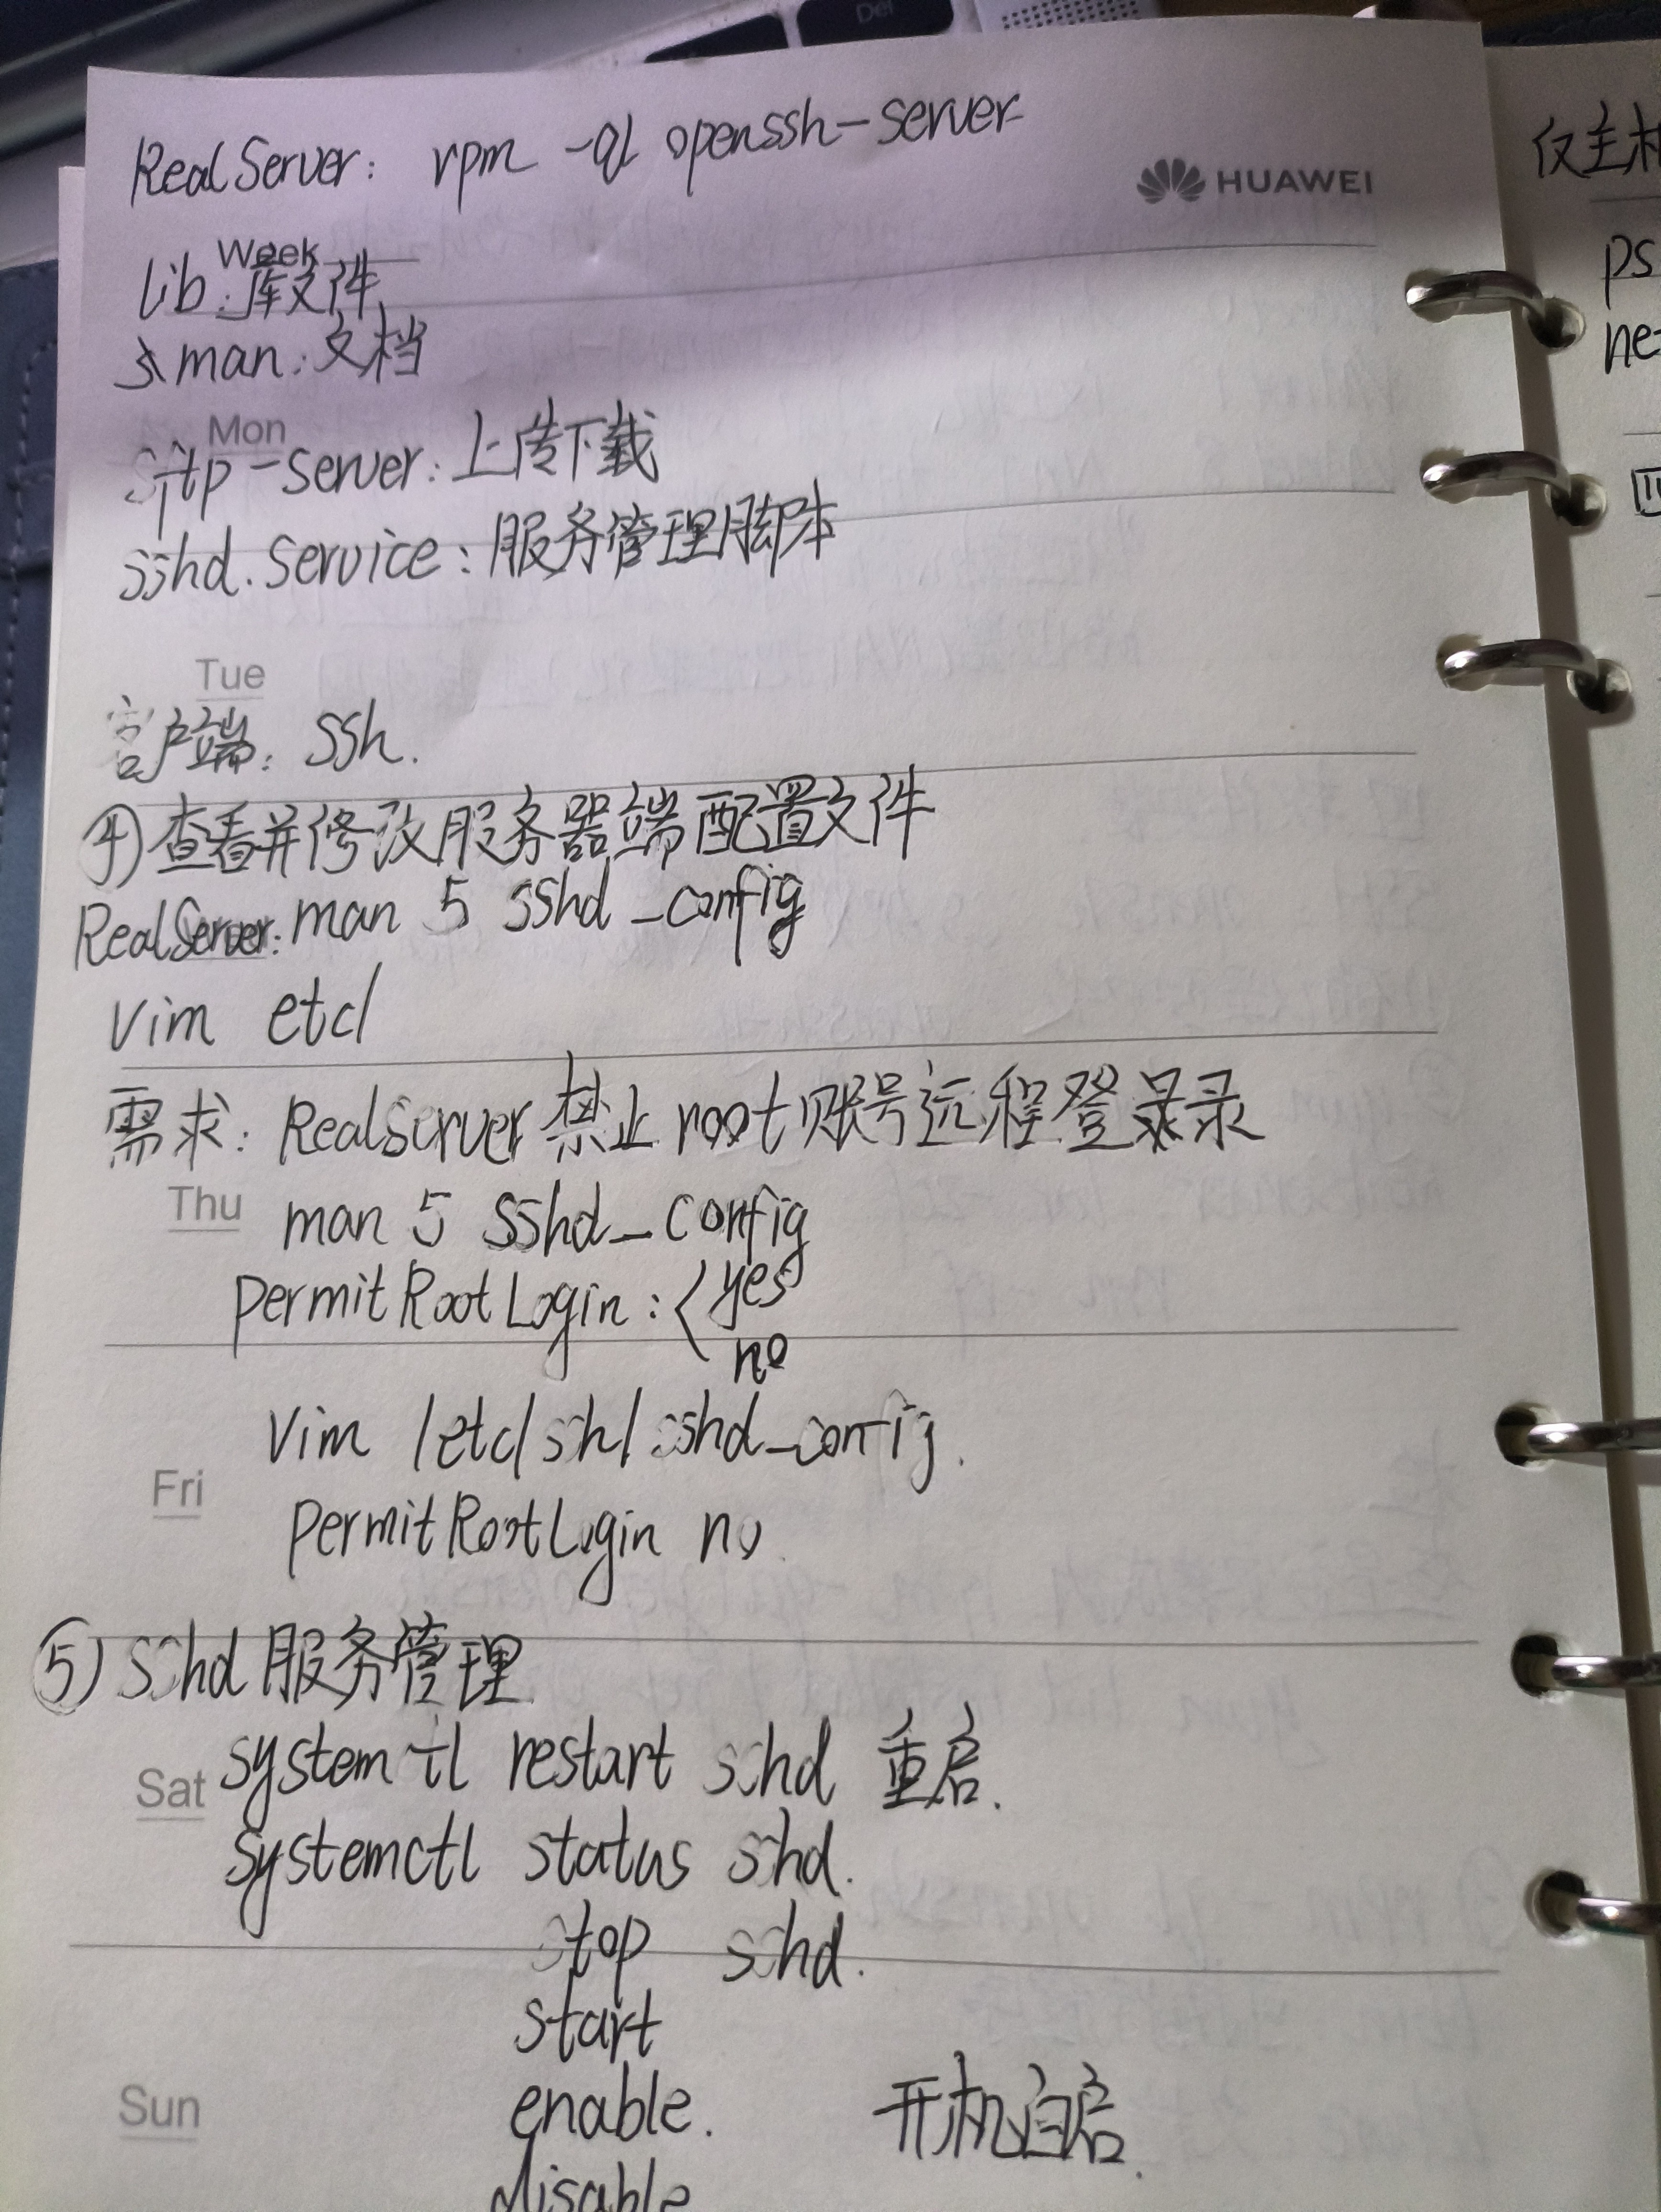 Del
RealServer: rpm -ql openssh-server
HUAWEI
Week
lib:库文件
man:文档
Mon
sftp-server:上传下载
sshd.service:服务管理脚本
Tue
客户端: ssh.
④查看并修改服务器端配置文件
RealServer: man 5 sshd_config
vim etc/
需求: RealServer禁止root账号远程登录
Thu
man 5 sshd_config
PermitRootLogin: yes
no
vim /etc/ssh/sshd_config.
Fri
PermitRootLogin no.
⑤ sshd服务管理
systemctl restart sshd 重启.
Sat
systemctl status sshd.
stop sshd.
start
enable. 开机自启.
Sun
disable
仅主机
ps
net
四